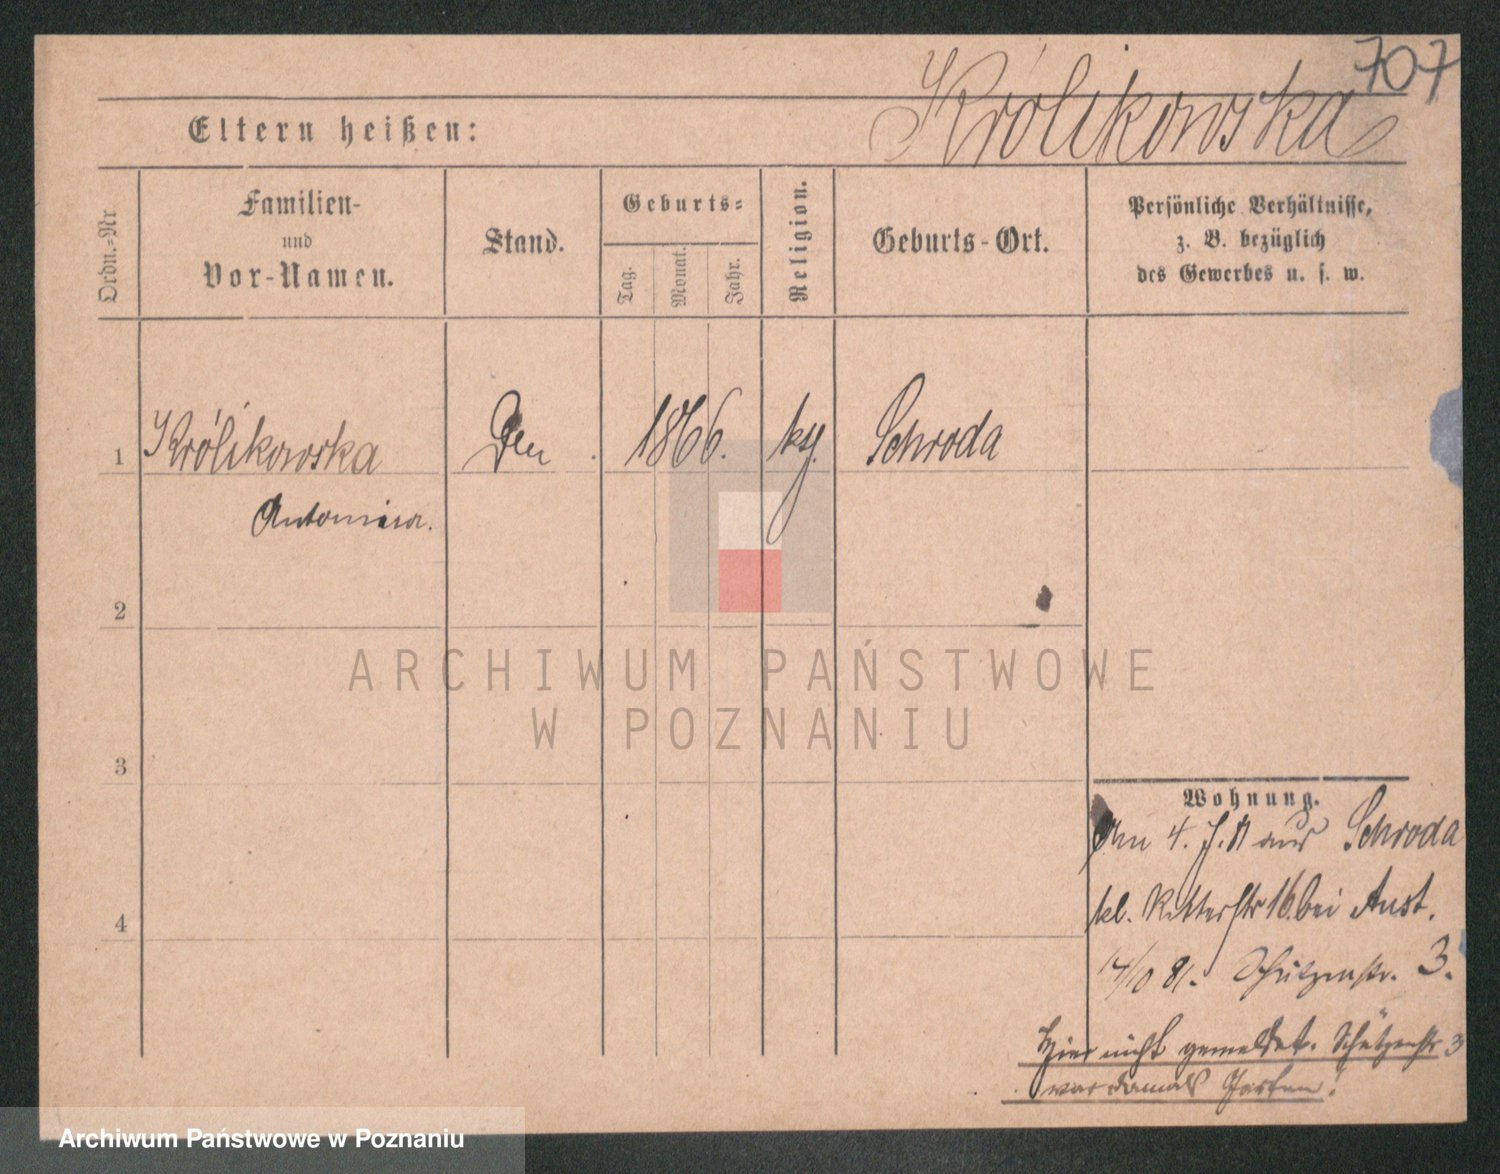 707
Królikowska
Eltern heißen:
Ordn.-Nr
Familien-
und
Vor-Namen.
Stand.
Geburts-
Tag.
Monat.
Jahr.
Religion.
Geburts-Ort.
Persönliche Verhältnisse,
z. B. bezüglich
des Gewerbes u. s. w.
1 Królikowska 1866. Schroda
Antonina.
2
3
4
ARCHIWUM PAŃSTWOWE
W POZNANIU
Wohnung.
Am 4. aus Schroda
kl. Ritterstr 16. bei
14/10 81. Schützenstr. 3.
Hier nicht gemeldet. Schützenstr 3
war damals Garten!
Archiwum Państwowe w Poznaniu